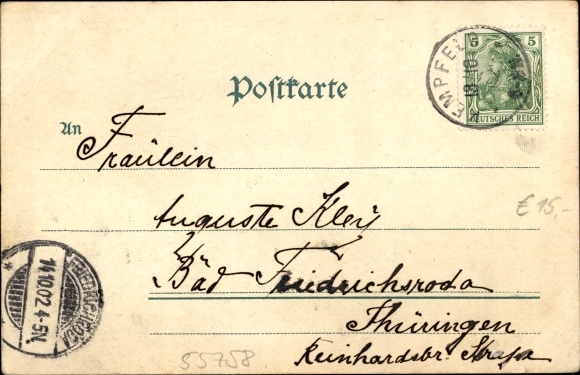 5 5
DEUTSCHES REICH
Postkarte
An
Fräulein
Auguste Kley
Bad Friedrichsroda
Thüringen
Reinhardsbr. Straße
€ 15,-
FRIEDRICHRODA
14.10.02.4-5N
55758